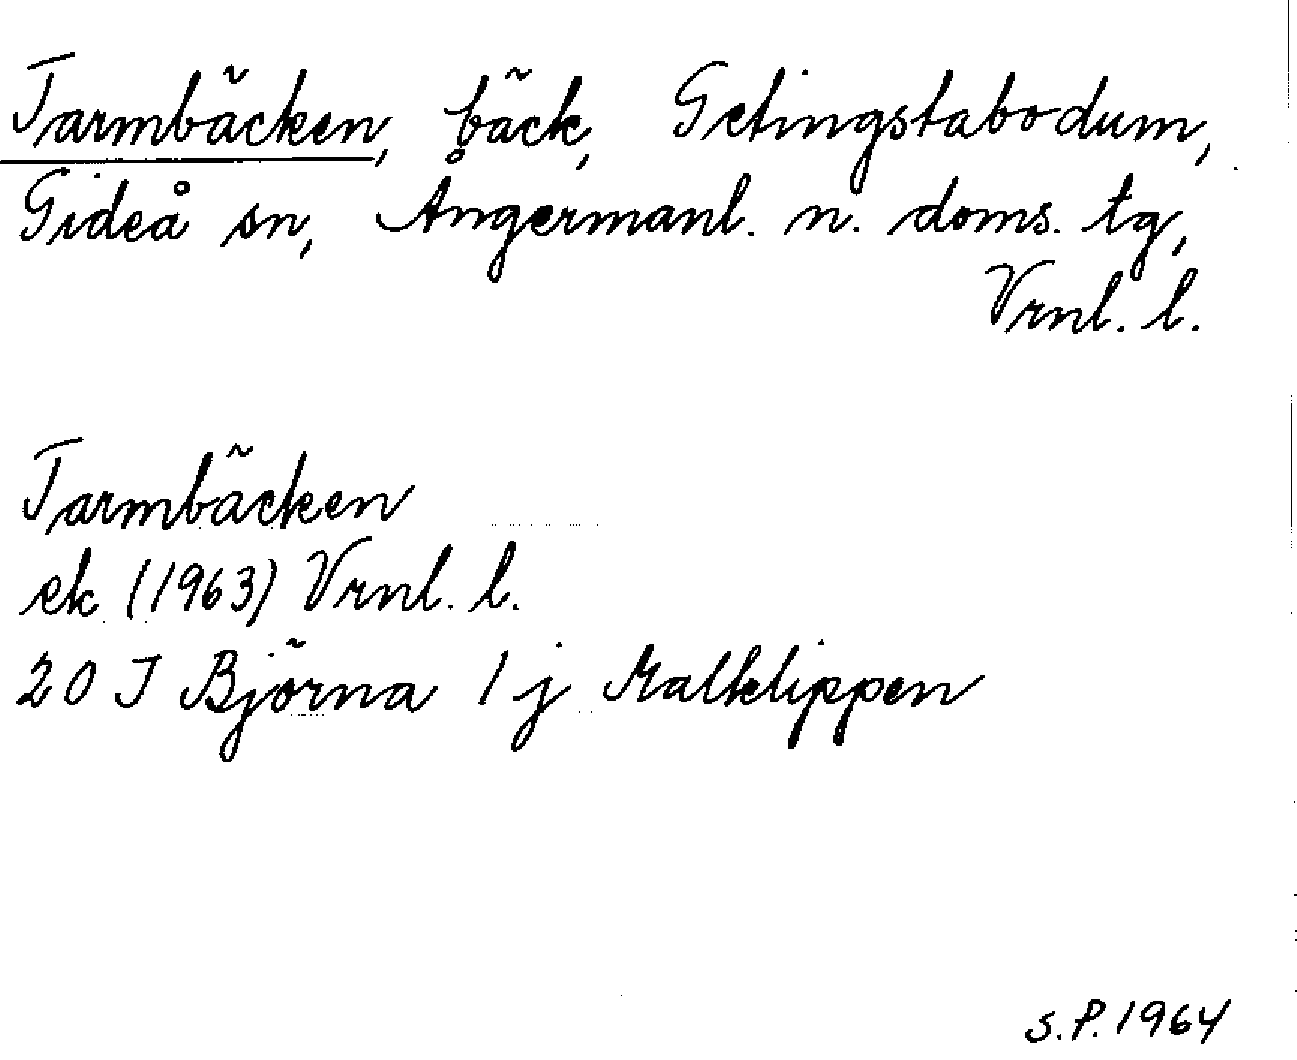 Tarmbäcken, bäck, Getingstabodum,
Gideå sn, Ångermanl. n. doms. tg,
Vrnl. l.
Tarmbäcken
ek (1963) Vrnl. l.
20 J Björna 1 j Malklippen
S.P. 1964